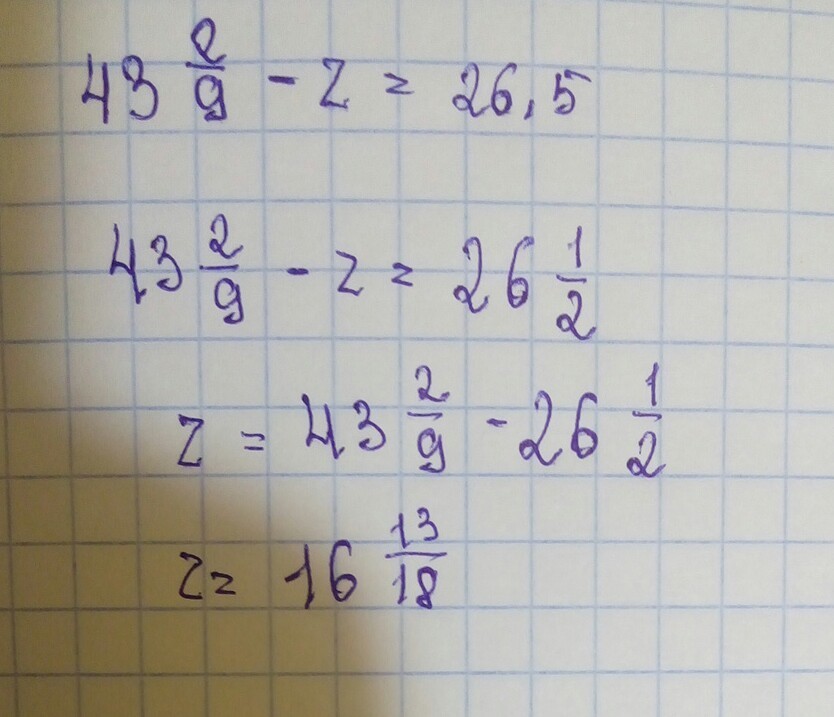 43 2/9 - z = 26,5
43 2/9 - z = 26 1/2
z = 43 2/9 - 26 1/2
z = 16 13/18